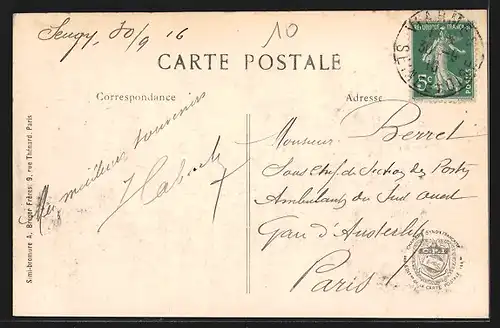 30/9 16
10
CARTE POSTALE
Correspondance
Adresse
RÉPUBLIQUE FRANÇAISE
5c
POSTES
Mes meilleurs souvenirs
Monsieur Berret
Sous Chef de Section des Postes
Ambulants du Sud Ouest
Gare d'Austerlitz
Paris
Simi-bromure A. Breger Frères, 9, rue Thénard, Paris